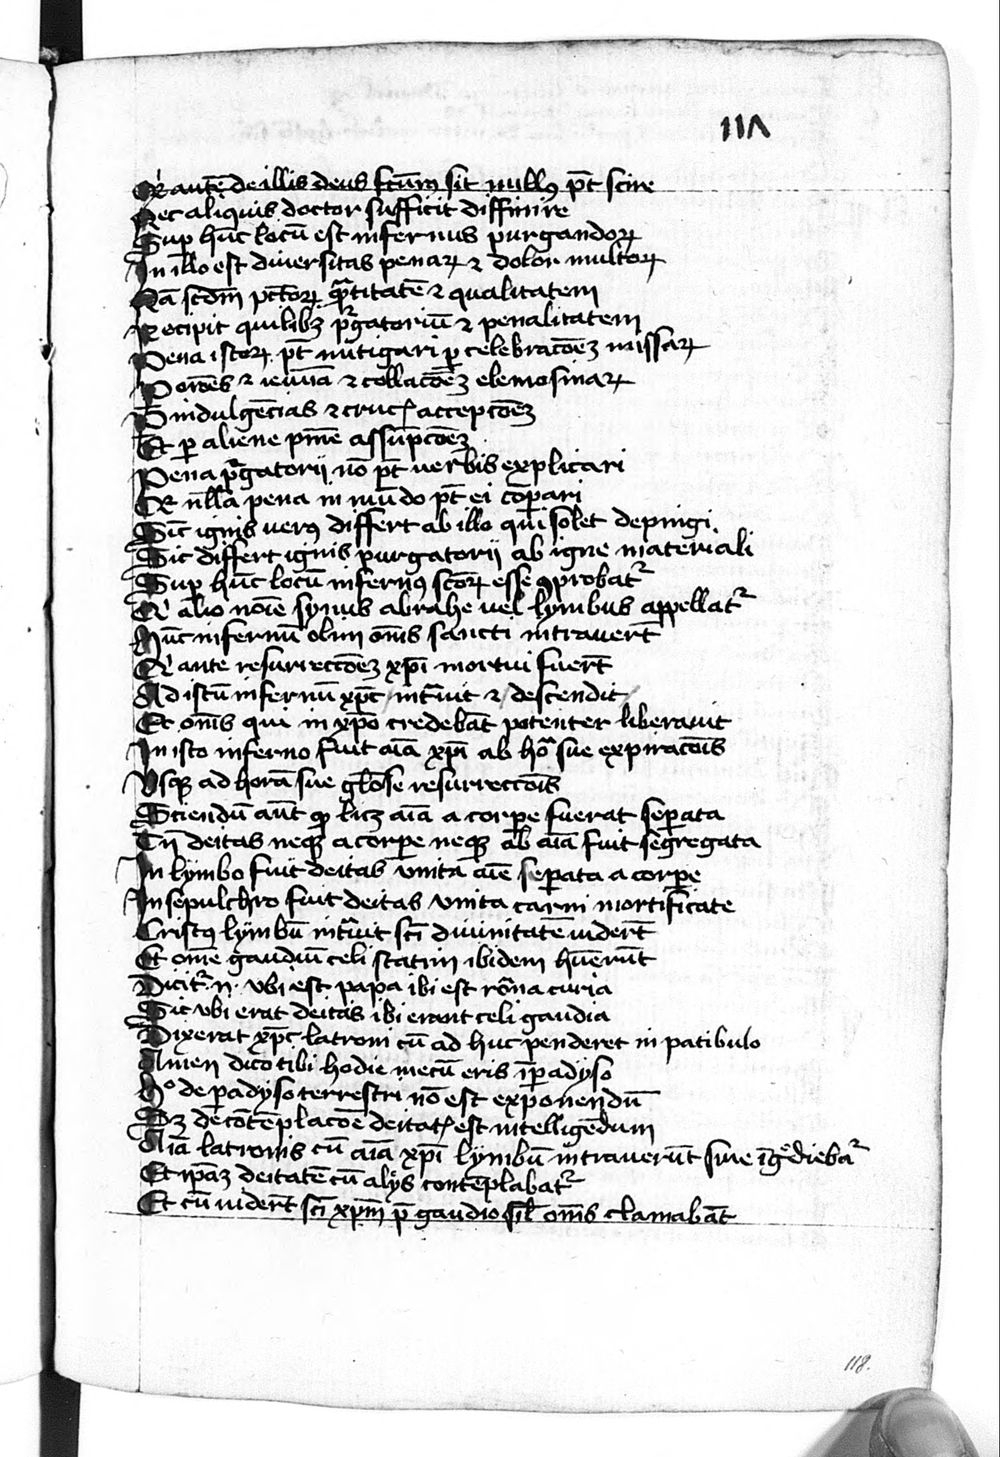 118
Q̇ autē de illis deus fctur⁹ sit null⁹ pt̄ scire
Nec aliquis doctor sufficit diffinire
Sup̱ hūc locū est infernus purgandoꝝ
In illo est diuersitas penaꝝ ⁊ dolor multoꝝ
Nā scd̄m pctōꝝ qͣntitatē ⁊ qualitatem
Recipit quilibꝫ pͬgatoriū ⁊ penalitatem
Pena istoꝝ pt̄ mitigari ꝑ celebracōeꝫ missaꝝ
P or̄ones ⁊ ieiunia ⁊ collacōeꝫ elemosinaꝝ
P indulgēcias ⁊ crucꝭ accepcōeꝫ
Et ꝑ aliene pn̄ie assūpcōeꝫ
Pena pͬgatorij nō pt̄ verbis explicari
Et nll̄a pena in mūdo pt̄ ei cōꝑari
Sic̄ ignis ver⁹ differt ab illo qui solet depingi
Sic differt ignis purgatorij ab igne materiali
Sup̱ hūc locū infern⁹ sctōꝝ esse ꝯprobatᷣ
Q̇ alio noīe synus abrahe uel lymbus appellatᷣ
Hūc infernū olim om̄s sancti intrauerūt
Q̇ ante resurreccōeꝫ xp̄i mortui fuerūt
Ad istū infernū xp̄c intͣuit ⁊ descendit
Et om̄s qui in xp̄o credebāt potenter liberauit
In isto inferno fuit aīa xp̄i ab hoͣ sue expiracōis
Vsqꝫ ad horā sue gl̄ose resurreccōis
Sciendū aūt ꝙ licꝫ aīa a corpe fuerat seꝑata
Tn̄ deitas neqꝫ a corpe neqꝫ ab aīa fuit segregata
In lymbo fuit deitas vnita aīe seꝑata a corpe
In sepulchro fuit deitas vnita carni mortificate
Crist⁹ lymbū intͣuit scī diuinitatē viderūt
Et om̄e gaudiū celi statim ibidem hūerūt
Dicitᷣ .n. vbi est papa ibi est rōna curia
Sic vbi erat deitas ibi erant celi gaudia
Dixerat xp̄c latroni cū ad huc penderet in patibulo
Amen dico tibi hodie mecū eris ī ꝑadyso
Hᵒ de ꝑadyso terrestri nō est exponendū
Sꝫ de cōtēplacōe deitatꝭ est intelligēdum
Aīa latronis cū aīa xp̄i lymbū intrauerūt siue īgͤdiebāᷣ
Et ip̄aꝫ deitatē cū alijs contēplabatᷣ
Et cū viderūt scī xp̄m p̱ gaudio sil̄ om̄s clamabāt
118.